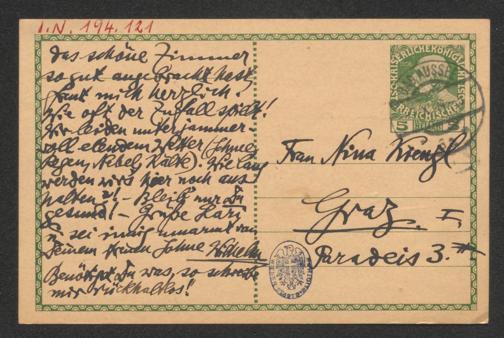 I.N. 194.121
Das schöne Zimmer
so gut angebracht hast
freut mich herzlich!
Wie oft der Zufall spielt!
Wir leiden unter jammer-
voll elendem Wetter (Schnee,
Regen, Nebel, Kälte). Wie lang
werden wirs hier noch aus
halten?! – Bleib nur Du
gesund! – Grüße Karl
u. sei innig umarmt von
Deinem treuen Sohne Wilhelm
Benötigst Du was, so schreibe
mir rückhaltlos!
AUSSEE
5 5
Frau Nina Kienzl
Graz. I.
Paradeis 3. II